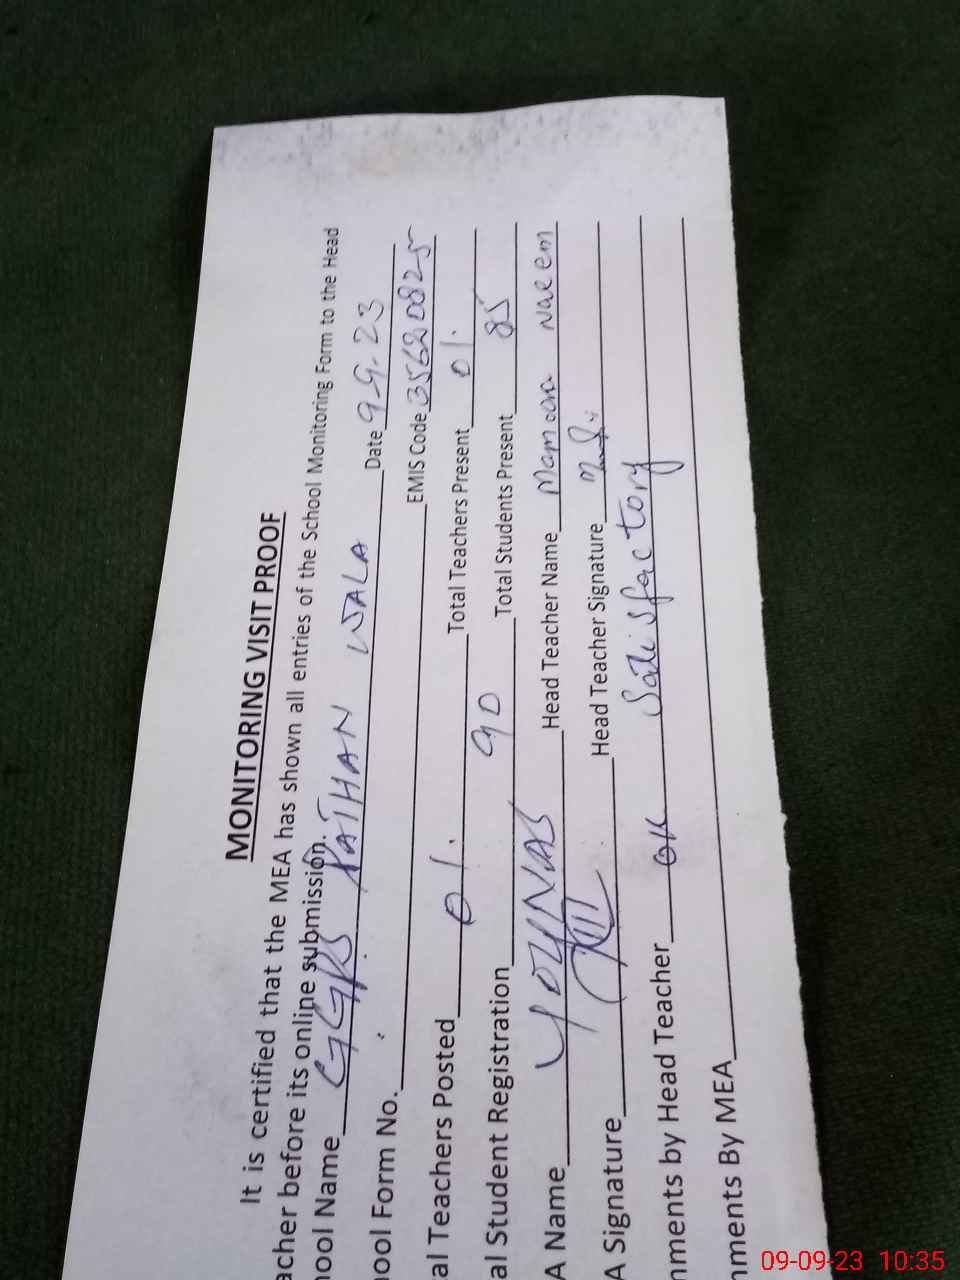 MONITORING VISIT PROOF
It is certified that the MEA has shown all entries of the School Monitoring Form to the Head
acher before its online submission.
hool Name GGPS PATHAN WALA Date 9-9-23
hool Form No. EMIS Code 35620825
al Teachers Posted 01. Total Teachers Present 01.
al Student Registration 90 Total Students Present 85
A Name YOUNAS Head Teacher Name Mamoona Naeem
A Signature Head Teacher Signature
mments by Head Teacher OK Satisfactory
mments By MEA
09-09-23 10:35